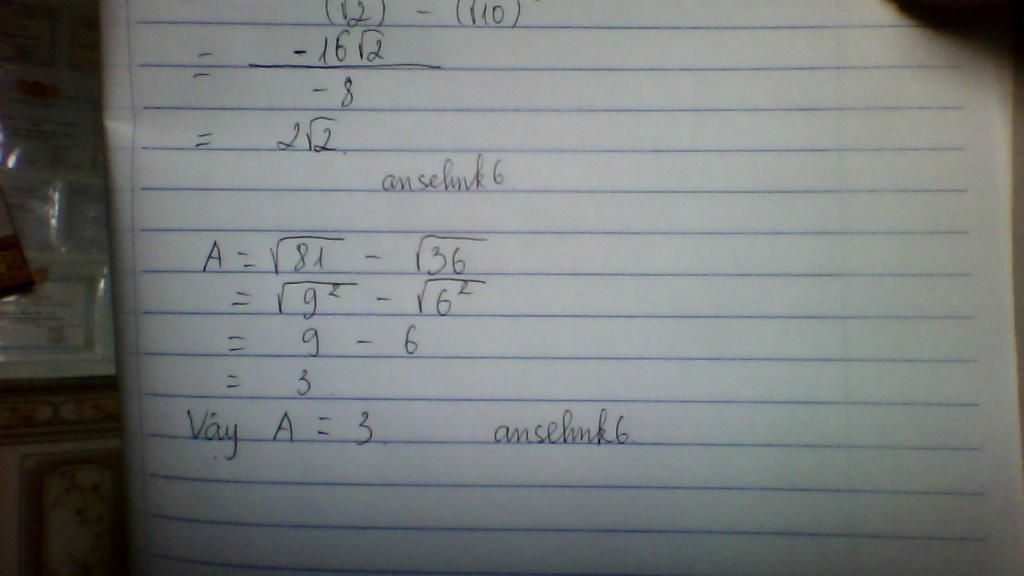 (√2) - (√10)
= -16√2
-8
= 2√2
anselmk6
A = √81 - √36
= √9² - √6²
= 9 - 6
= 3
Vậy A = 3 anselmk6